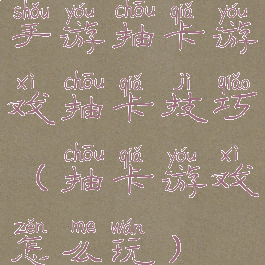 shǒu yóu chōu qiǎ yóu
手 游 抽 卡 游
xì chōu qiǎ jì qiǎo
戏 抽 卡 技 巧
chōu qiǎ yóu xì
（ 抽 卡 游 戏
zěn me wán
怎 么 玩 ）